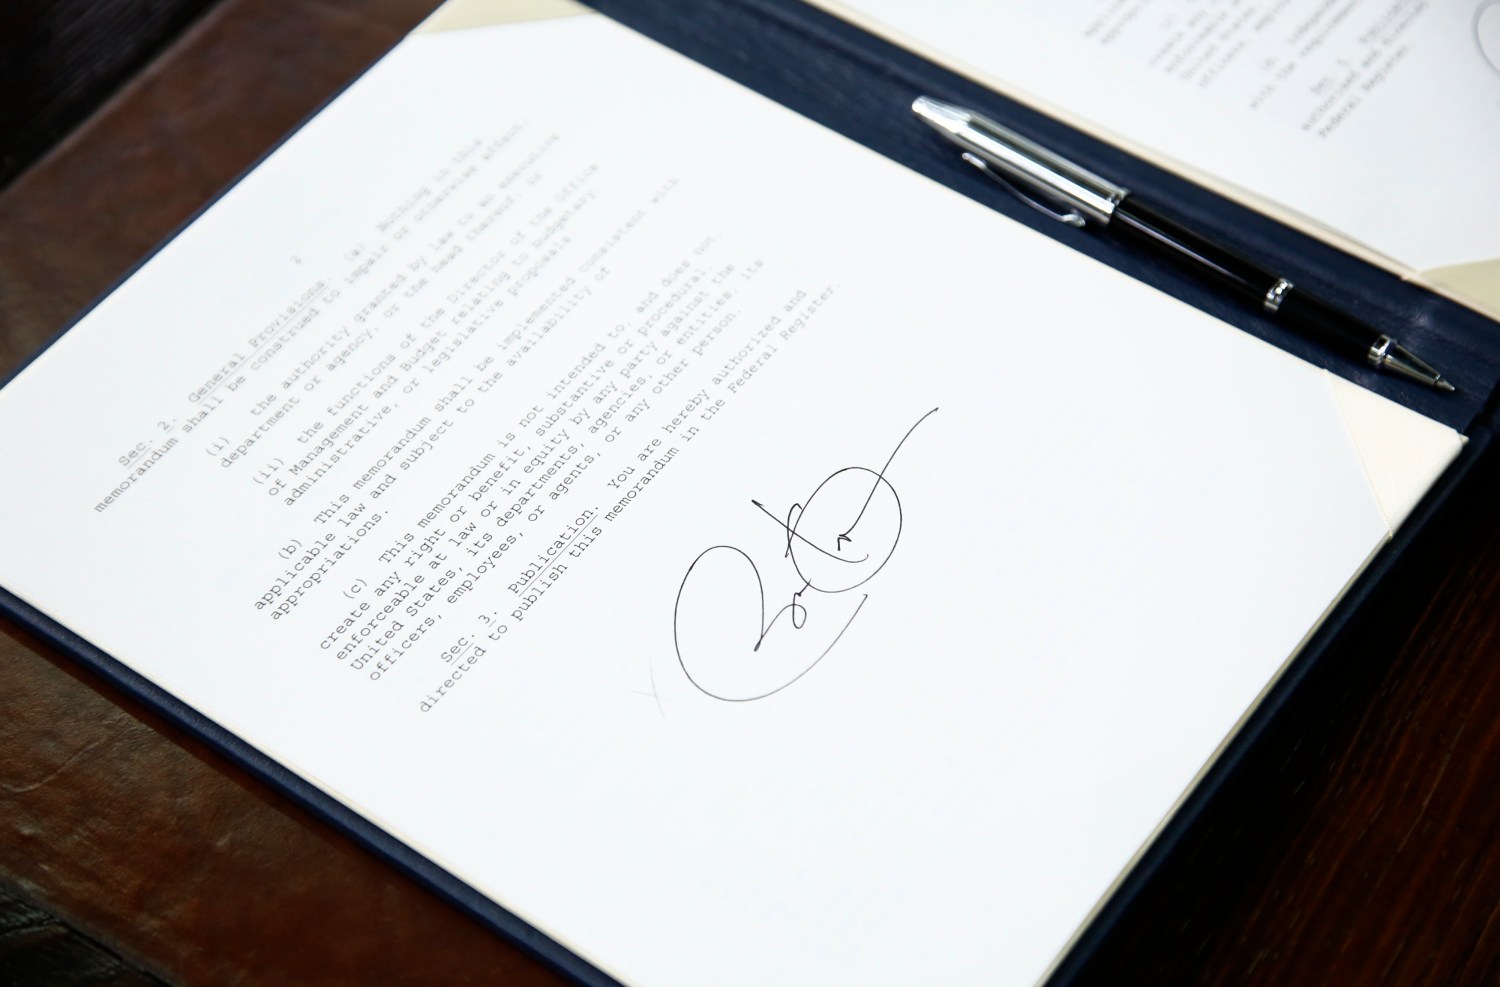 2
Sec. 2. General Provisions. (a) Nothing in this
memorandum shall be construed to impair or otherwise affect:
(i) the authority granted by law to an executive
department or agency, or the head thereof; or
(ii) the functions of the Director of the Office
of Management and Budget relating to budgetary,
administrative, or legislative proposals
(b) This memorandum shall be implemented consistent with
applicable law and subject to the availability of
appropriations.
(c) This memorandum is not intended to, and does not,
create any right or benefit, substantive or procedural,
enforceable at law or in equity by any party against the
United States, its departments, agencies, or entities, its
officers, employees, or agents, or any other person.
Sec. 3. Publication. You are hereby authorized and
directed to publish this memorandum in the Federal Register
with the requirements
Sec. 3.
authorized and directed
Federal Register